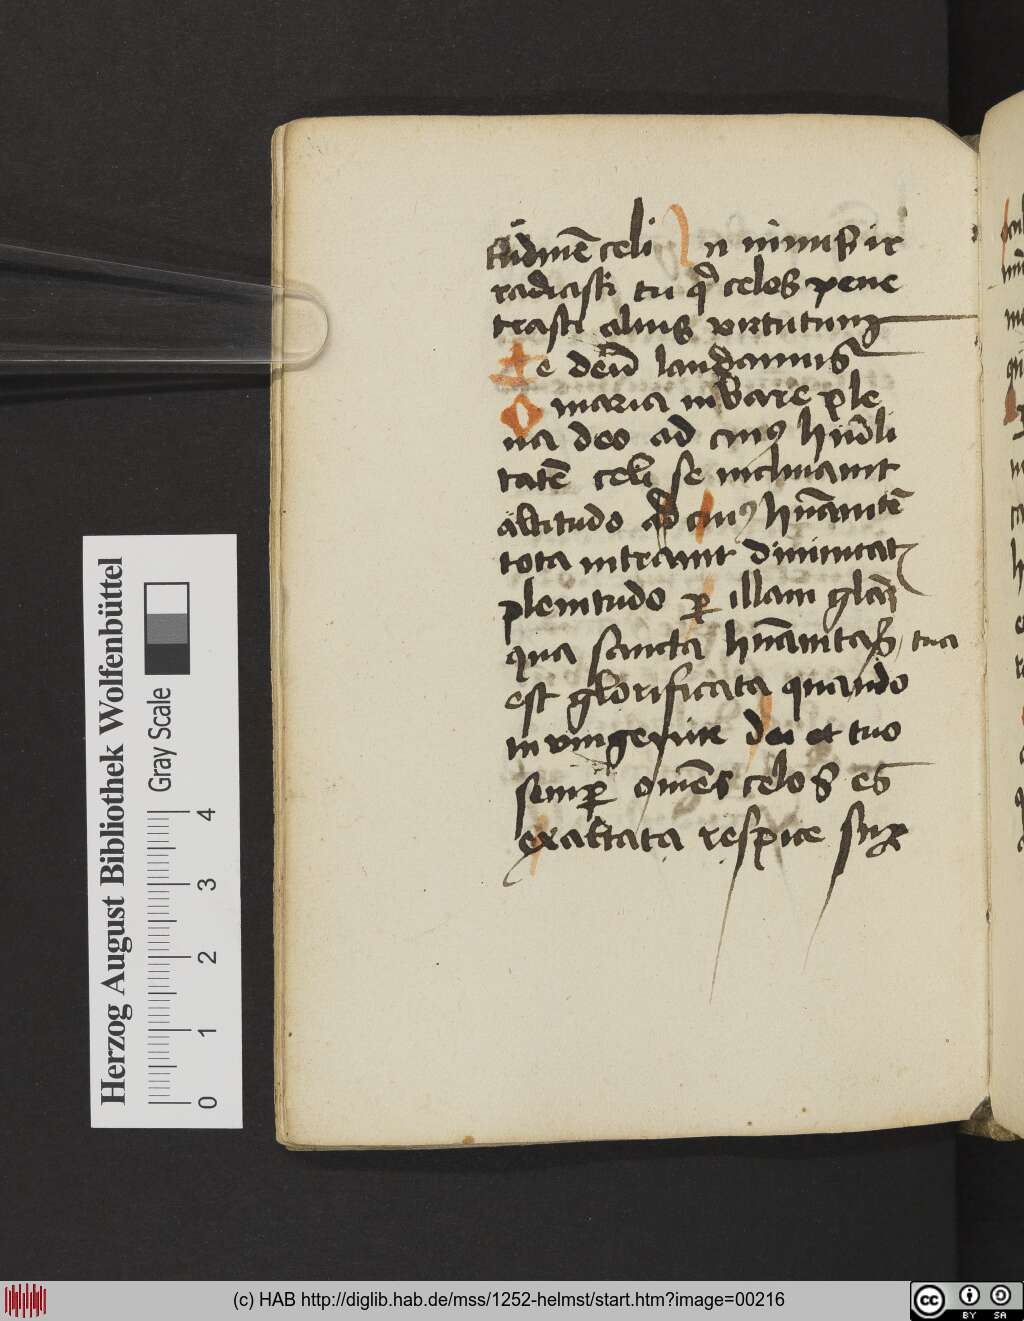 tudinē celi In nimis ir
radiasti tu q̄ celos pene
trasti alius virtutum
Te deū laudamus
O maria iubare ple
na deo ad cuiꝰ hūili
tatē celi se inclinauit
altitudo ad cuiꝰ hūanitē
tota intrauit diuinitat
plenitudo ꝑ illam glāz
qua sancta hūanitas tua
est glorificata quando
in unigenite dei et tuo
semꝑ omēs celos es
exaltata respice suꝑ
Herzog August Bibliothek Wolfenbüttel
Gray Scale
0 1 2 3 4
(c) HAB http://diglib.hab.de/mss/1252-helmst/start.htm?image=00216
cc BY SA